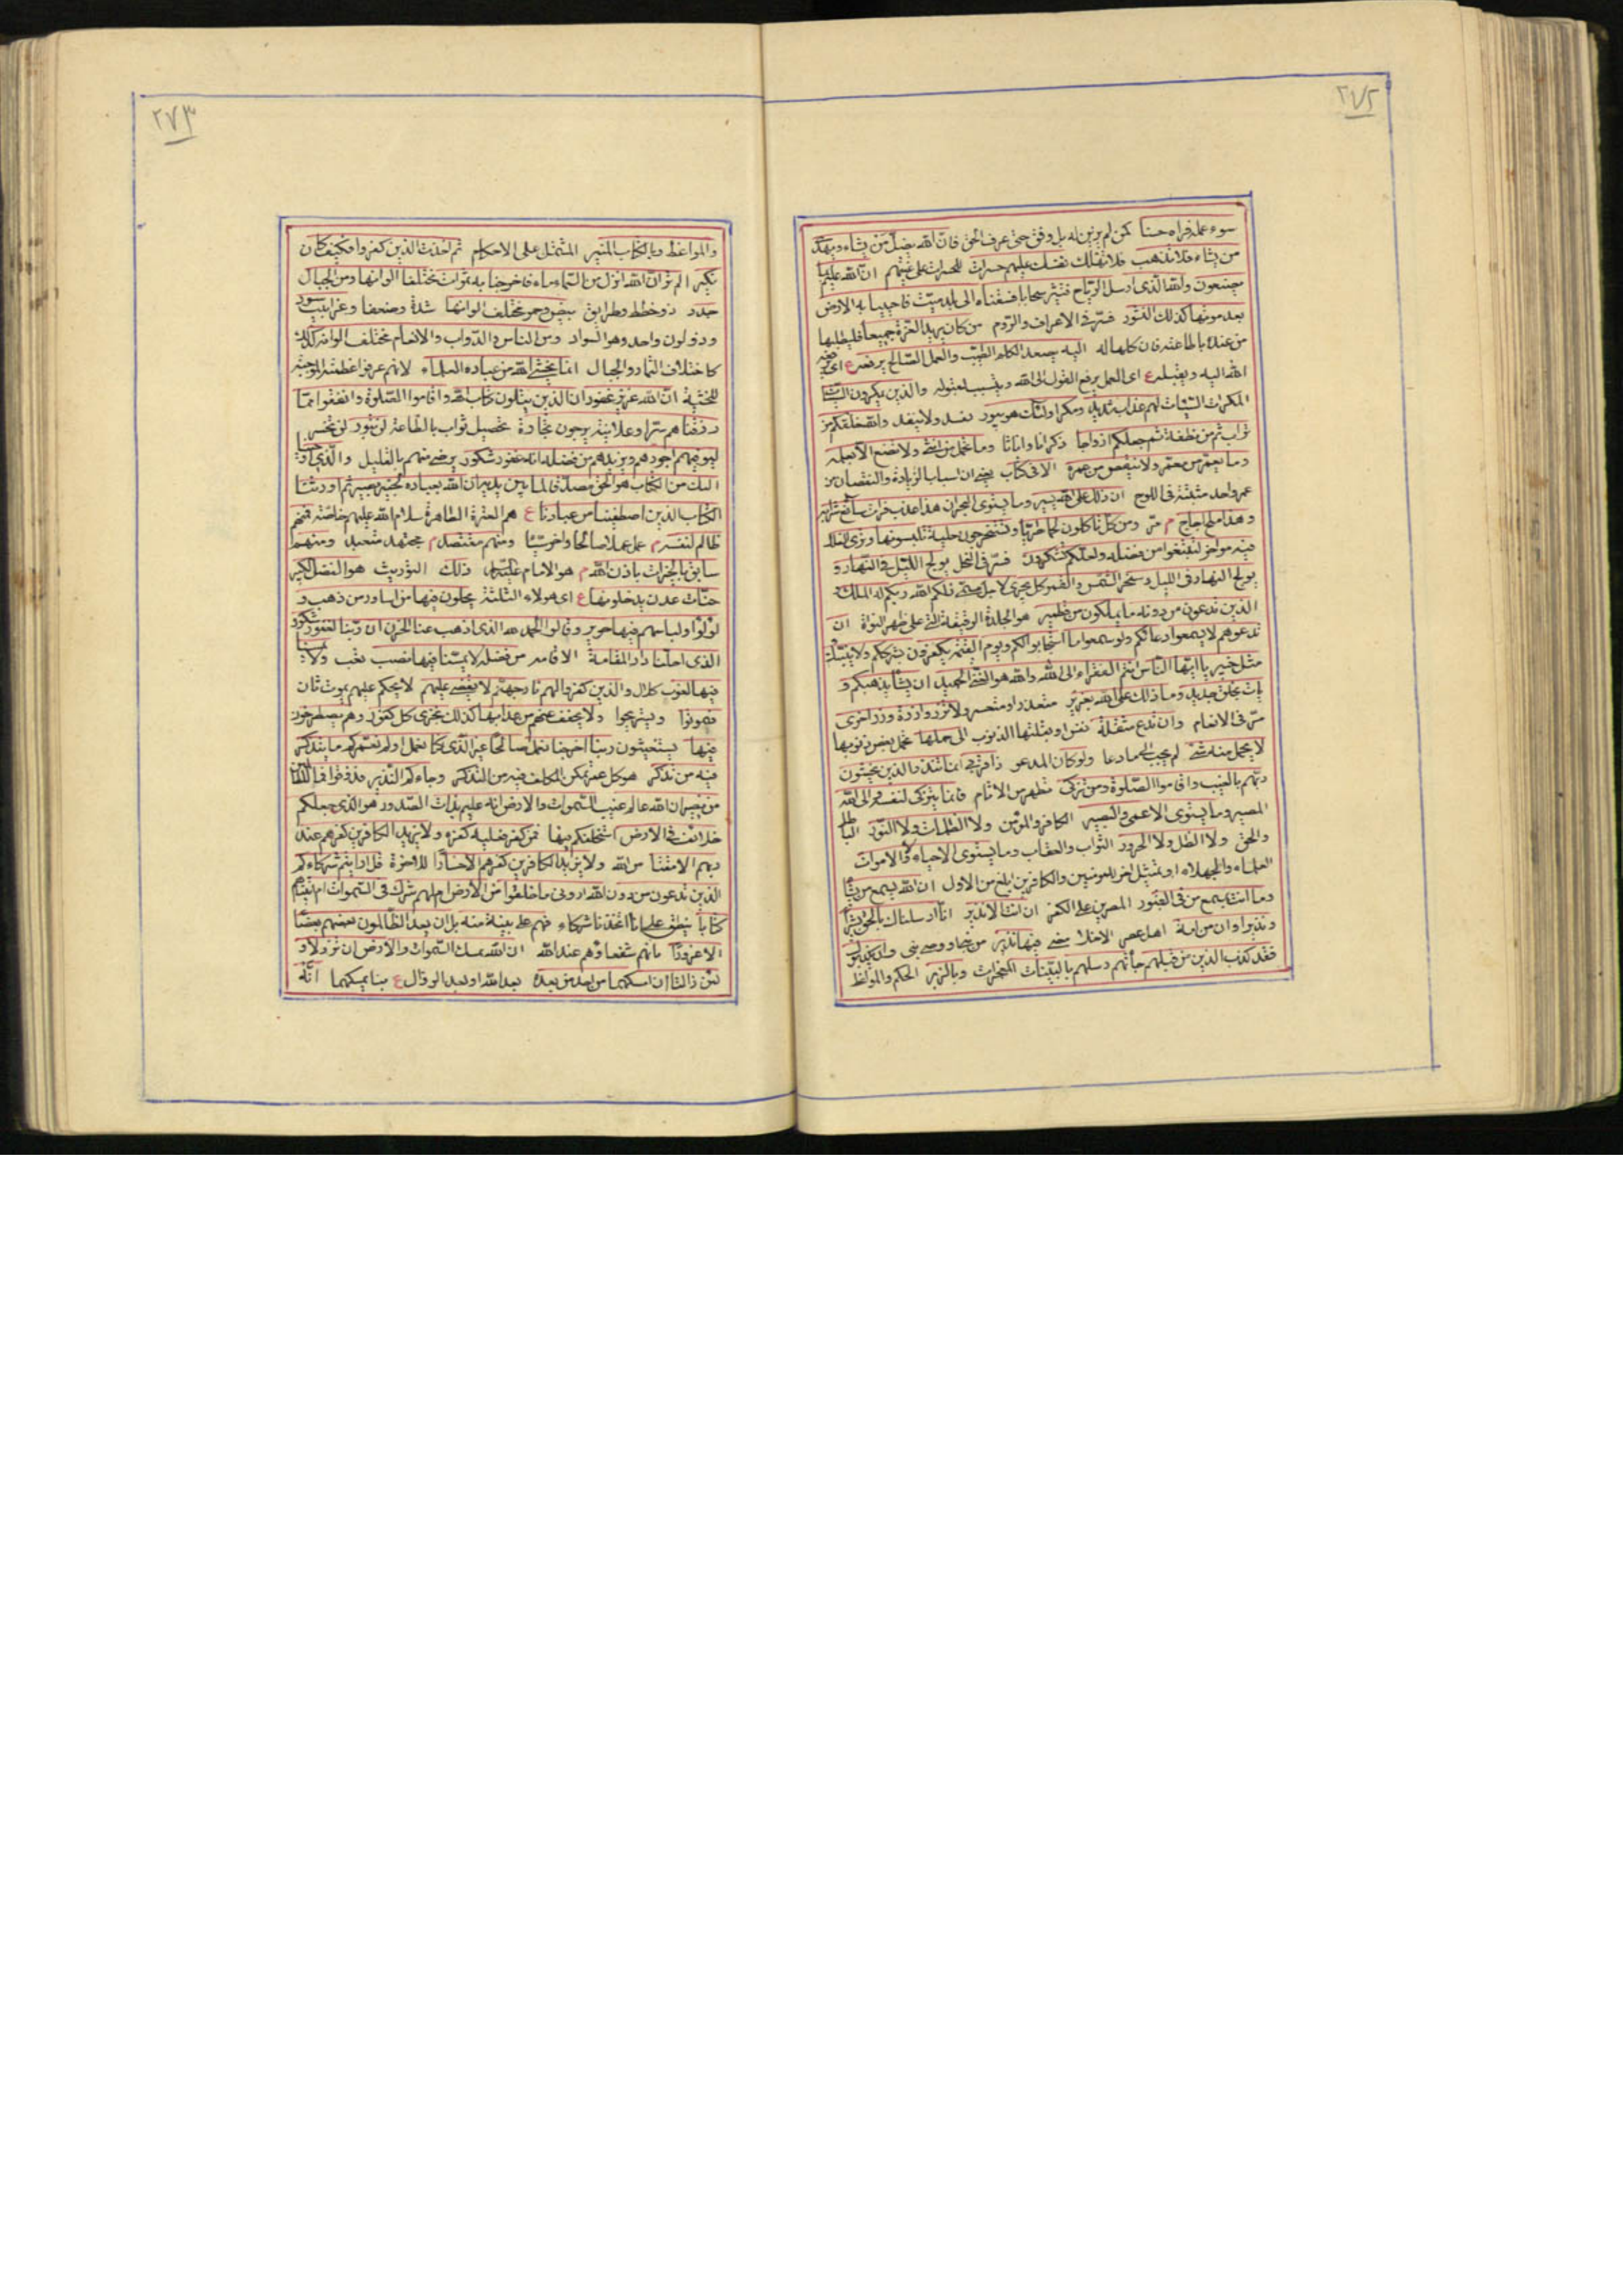 ٢٧٢
سوء عمله فراه حسنا كمن لم يزين له بل وفق حتى عرف الحق فان الله يضل من يشاء ويهدى
من يشاء فلا تذهب فلا تهلك نفسك عليهم حسرات للحسرات على غيهم ان الله عليم بما
يصنعون والله الذى ارسل الرياح فتثير سحابا فسقناه الى بلد ميت فاحيينا به الارض
بعد موتها كذلك النشور فسر فى الاعراف والروم من كان يريد العزة جميعا فليطلبها
من عنده بالطاعة فان كلها له اليه يصعد الكلم الطيب والعمل الصالح يرفعه ع اى
الله اليه ويقبله ع اى العمل يرفع القول الى الله وبسبب لقبوله والذين يمكرون السيئات
المكرات السيئات لهم عذاب شديد ومكر اولئك هو يبور يفسد ولا ينفذ والله خلقكم من
تراب ثم من نطفة ثم جعلكم ازواجا ذكرانا واناثا وما تحمل من انثى ولا تضع الا بعلمه
وما يعمر من معمر ولا ينقص من عمره الا فى كتاب يعنى ان اسباب الزيادة والنقصان من
عمر واحد مثبتة فى اللوح ان ذلك على الله يسير وما يستوى البحران هذا عذب فرات سائغ شرابه
وهذا ملح اجاج م مر ومن كل تاكلون لحما طريا وتستخرجون حلية تلبسونها وترى الفلك
فيه مواخر لتبتغوا من فضله ولعلكم تشكرون فسر فى النحل يولج الليل فى النهار و
يولج النهار فى الليل وسخر الشمس والقمر كل يجرى لاجل مسمى ذلكم الله ربكم له الملك و
الذين تدعون من دونه ما يملكون من قطمير هو الجلدة الرقيقة التى على ظهر النواة ان
تدعوهم لا يسمعوا دعائكم ولو سمعوا ما استجابوا لكم ويوم القيمة يكفرون بشرككم ولا ينبئك
مثل خبير يا ايها الناس انتم الفقراء الى الله والله هو الغنى الحميد ان يشا يذهبكم و
يات بخلق جديد وما ذلك على الله بعزيز متعذر او متعسر ولا تزر وازرة وزر اخرى
مر فى الانعام وان تدع مثقلة نفس اوثقلتها الذنوب الى حملها تحمل بعض ذنوبها
لا يحمل منه شئ لم يجب لحمل ما دعا ولو كان المدعو ذا قربى انما تنذر الذين يخشون
ربهم بالغيب واقاموا الصلوة ومن تزكى تطهر من الاثام فانما يتزكى لنفسه والى الله
المصير وما يستوى الاعمى والبصير الكافر والمؤمن ولا الظلمات ولا النور الباطل
والحق ولا الظل ولا الحرور الثواب والعقاب وما يستوى الاحياء ولا الاموات
العلماء والجهلاء او تمثيل اخر للمؤمنين والكافرين ابلغ من الاول ان الله يسمع من يشاء
وما انت بمسمع من فى القبور المصرين على الكفر ان انت الا نذير انا ارسلناك بالحق بشيرا
ونذيرا وان من امة اهل عصر الا خلا مضى فيها نذير من نبى او وصى نبى وان يكذبوك
فقد كذب الذين من قبلهم جاءتهم رسلهم بالبينات المعجزات وبالزبر الحكم والمواعظ
٢٧٣
والمواعظ وبالكتاب المنير المشتمل على الاحكام ثم اخذت الذين كفروا فكيف كان
نكير الم تر ان الله انزل من السماء ماء فاخرجنا به ثمرات مختلفا الوانها ومن الجبال
جدد ذو خطط وطرايق بيض وحمر مختلف الوانها شدة وضعفا وغرابيب سود
وذو لون واحد وهو السواد ومن الناس والدواب والانعام مختلف الوانه كذلك
كاختلاف الثمار والجبال انما يخشى الله من عباده العلماء لانهم عرفوا عظمته الموجبة
للخشية ان الله عزيز غفور ان الذين يتلون كتاب الله واقاموا الصلوة وانفقوا مما
رزقناهم سرا وعلانية يرجون تجارة تحصيل ثواب بالطاعة لن تبور لن تخسر
ليوفيهم اجورهم ويزيدهم من فضله انه غفور شكور يرضى منهم بالقليل والذى اوحينا
اليك من الكتاب هو الحق مصدقا لما بين يديه ان الله بعباده لخبير بصير ثم اورثنا
الكتاب الذين اصطفينا من عبادنا ع هم العترة الطاهرة سلام الله عليهم خاصة فمنهم
ظالم لنفسه م عمل عملا صالحا واخر سيئا ومنهم مقتصد م مجتهد متعبد ومنهم
سابق بالخيرات باذن الله م هو الامام ذلك التوريث هو الفضل الكبير
جنات عدن يدخلونها ع اى هولاء الثلثة يحلون فيها من اساور من ذهب و
لؤلؤا ولباسهم فيها حرير وقالوا الحمد لله الذى اذهب عنا الحزن ان ربنا لغفور شكور
الذى احلنا دار المقامة الاقامة من فضله لا يمسنا فيها نصب تعب ولا يمسنا
فيها لغوب كلال والذين كفروا لهم نار جهنم لا يقضى عليهم لا يحكم عليهم بموت ثان
فيموتوا ويستريحوا ولا يخفف عنهم من عذابها كذلك نجزى كل كفور وهم يصطرخون
فيها يستغيثون ربنا اخرجنا نعمل صالحا غير الذى كنا نعمل اولم نعمركم ما يتذكر
فيه من تذكر هو كل عمر تمكن المكلف فيه من التذكر وجاءكم النذير فذوقوا فما للظالمين
من نصير ان الله عالم غيب السموات والارض انه عليم بذات الصدور هو الذى جعلكم
خلائف فى الارض استخلفكم فيها فمن كفر فعليه كفره ولا يزيد الكافرين كفرهم عند
ربهم الا مقتا من الله ولا يزيد الكافرين كفرهم الا خسارا للاخرة قل ارايتم شركاءكم
الذين تدعون من دون الله ارونى ماذا خلقوا من الارض ام لهم شرك فى السموات ام اتيناهم
كتابا ينطق على انا اتخذنا شركاء فهم على بينة منه بل ان يعد الظالمون بعضهم بعضا
الا غرورا بانهم شفعاؤهم عند الله ان الله يمسك السموات والارض ان تزولا و
لئن زالتا ان امسكهما من احد من بعده بعد الله او بعد الزوال ع بنا يمسكهما انه